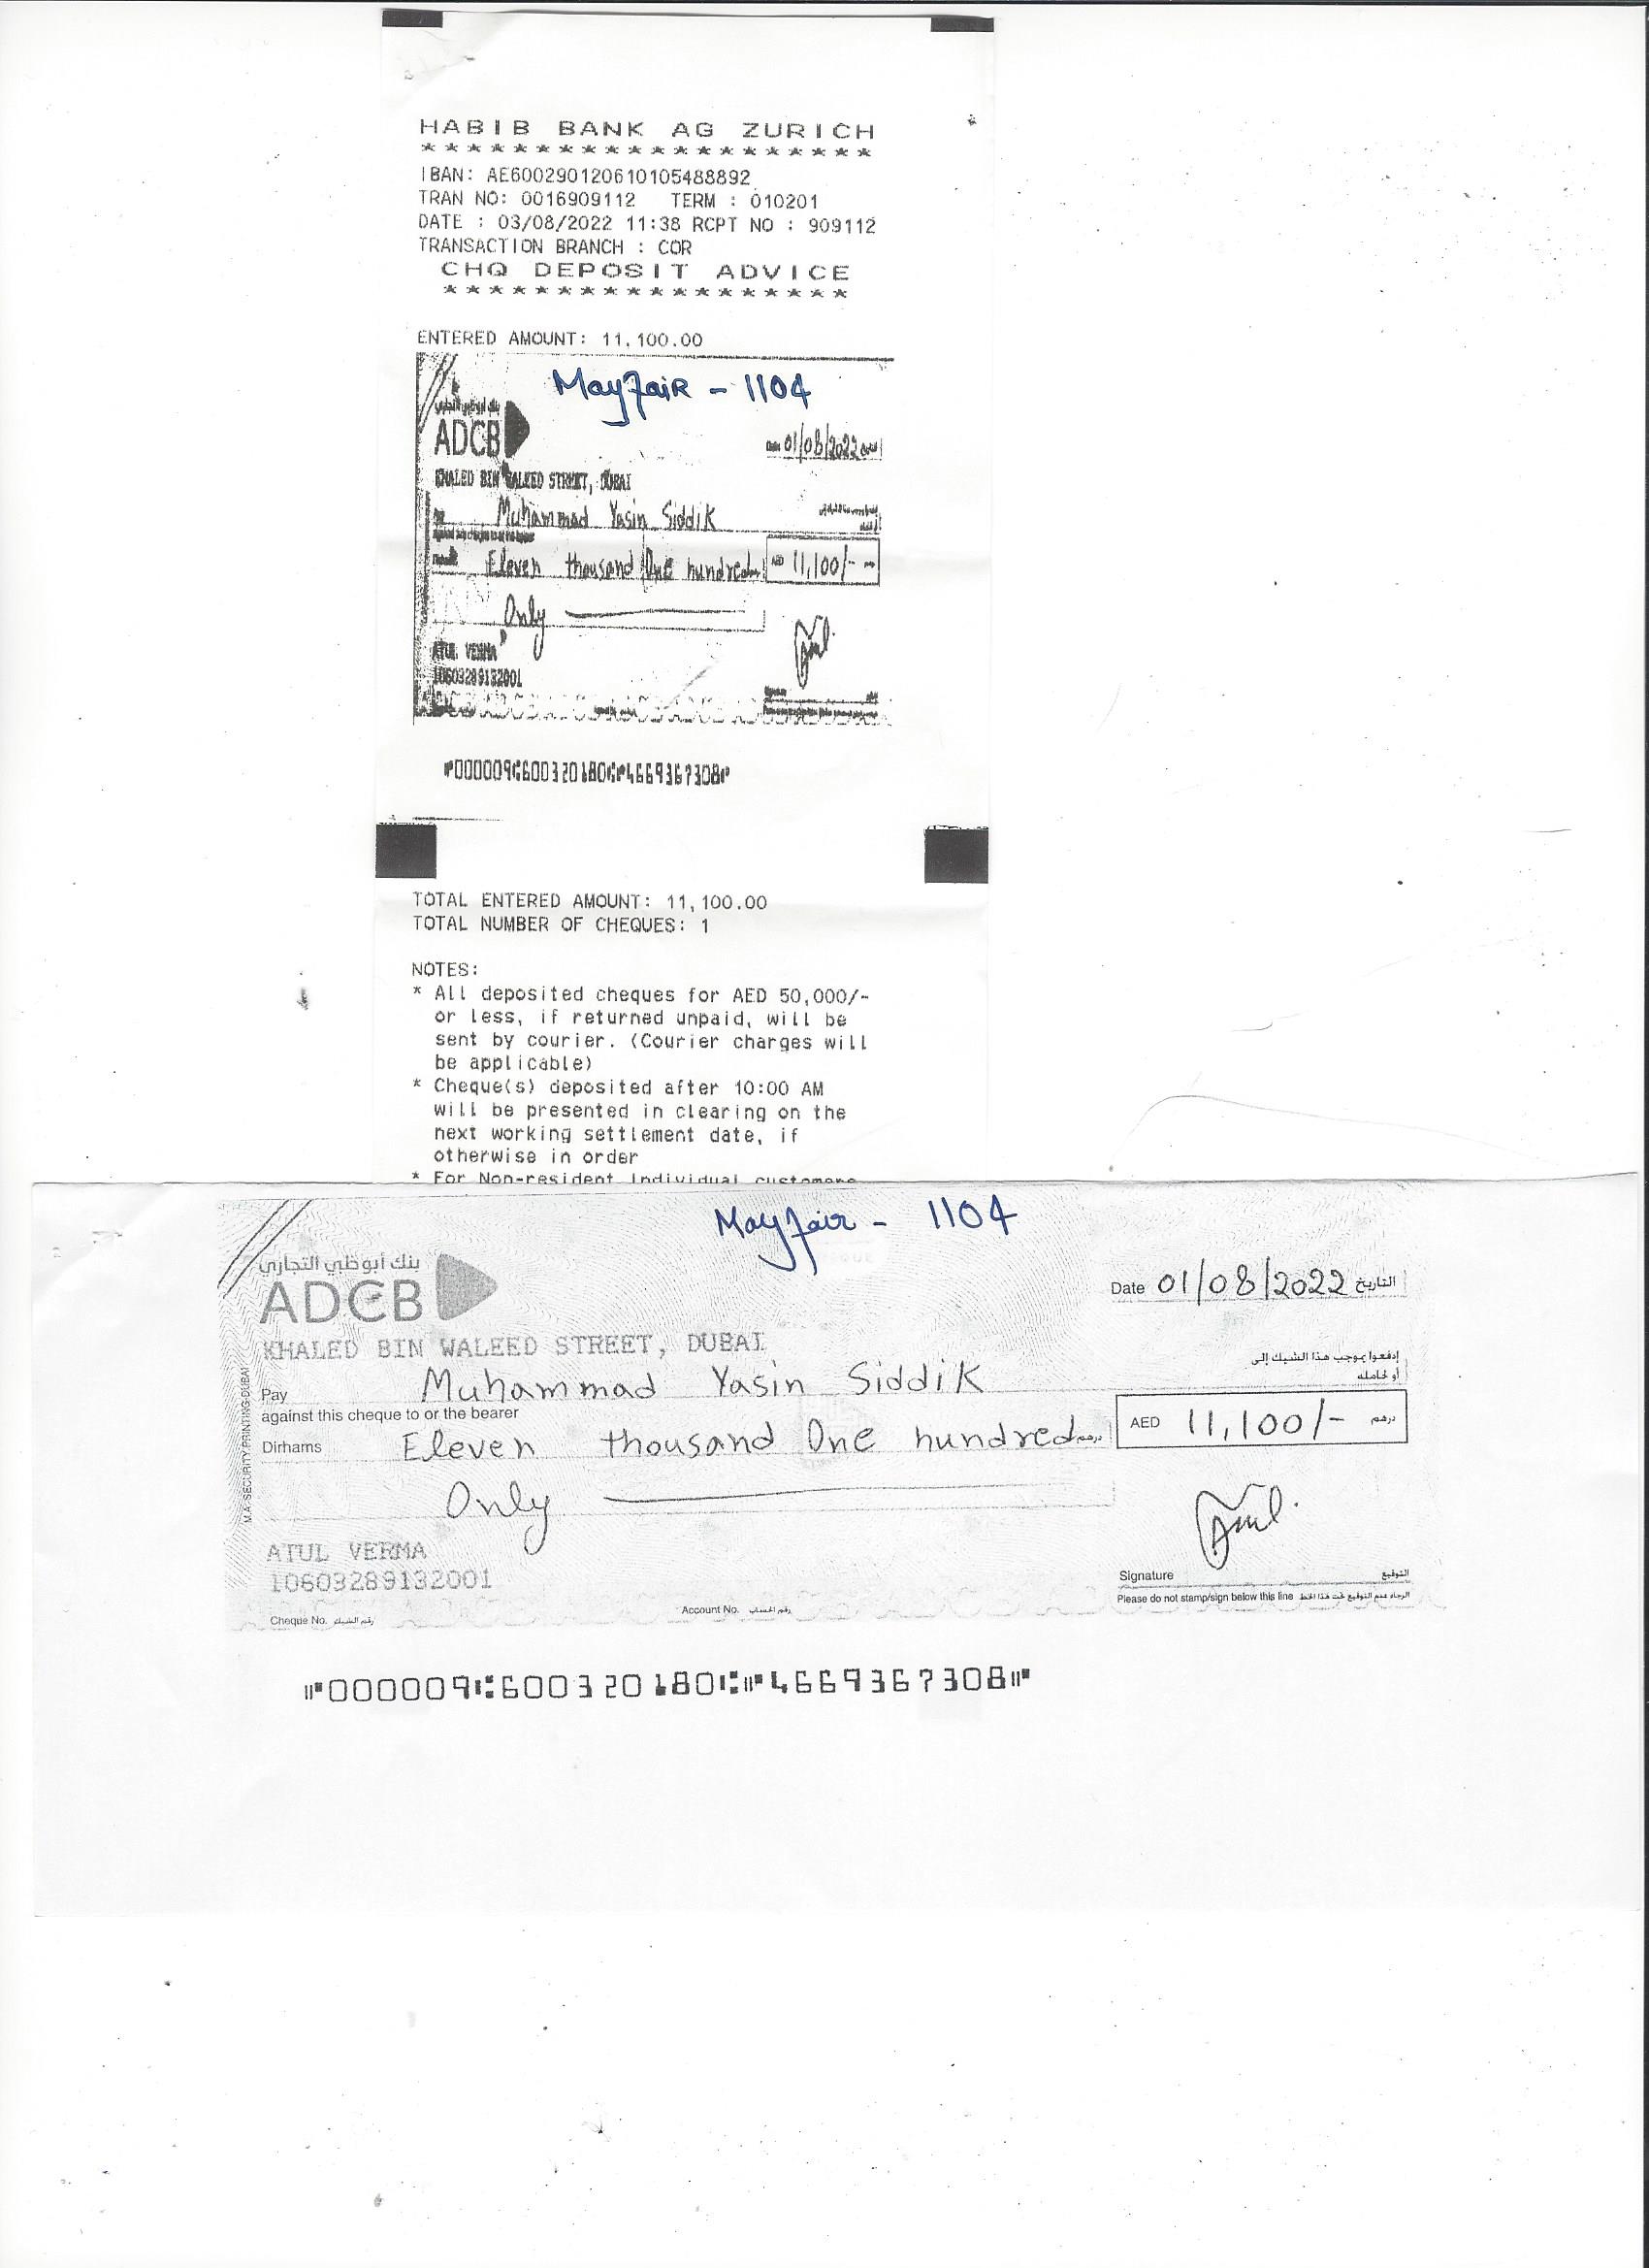 HABIB BANK AG ZURICH
* * * * * * * * * * * * * * * * * * * *
IBAN: AE600290120610105488892
TRAN NO: 0016909112 TERM : 010201
DATE : 03/08/2022 11:38 RCPT NO : 909112
TRANSACTION BRANCH : COR
CHQ DEPOSIT ADVICE
* * * * * * * * * * * * * * * * * *
ENTERED AMOUNT: 11,100.00
Mayfair - 1104
بنك أبوظبي التجاري
ADCB
01/08/2022
KHALED BIN WALEED STREET, DUBAI
Muhammad Yasin Siddik
Eleven thousand One hundred AED 11,100/-
Only
ATUL VERMA
10603289132001
⑈000009⑆600320180⑆⑈4669367308⑈
TOTAL ENTERED AMOUNT: 11,100.00
TOTAL NUMBER OF CHEQUES: 1
NOTES:
* All deposited cheques for AED 50,000/-
or less, if returned unpaid, will be
sent by courier. (Courier charges will
be applicable)
* Cheque(s) deposited after 10:00 AM
will be presented in clearing on the
next working settlement date, if
otherwise in order
* For Non-resident Individual customers
Mayfair - 1104
بنك أبوظبي التجاري
ADCB
Date 01/08/2022 التاريخ
KHALED BIN WALEED STREET, DUBAI
إدفعوا بموجب هذا الشيك إلى
أو لحامله
Pay Muhammad Yasin Siddik
against this cheque to or the bearer
Dirhams Eleven thousand One hundred درهم AED 11,100/- درهم
Only
M.A. SECURITY PRINTING-DUBAI
ATUL VERMA
10603289132001
Signature التوقيع
Please do not stamp/sign below this line الرجاء عدم التوقيع تحت هذا الخط
Cheque No. رقم الشيك Account No. رقم الحساب
⑈000009⑆600320180⑆⑈4669367308⑈